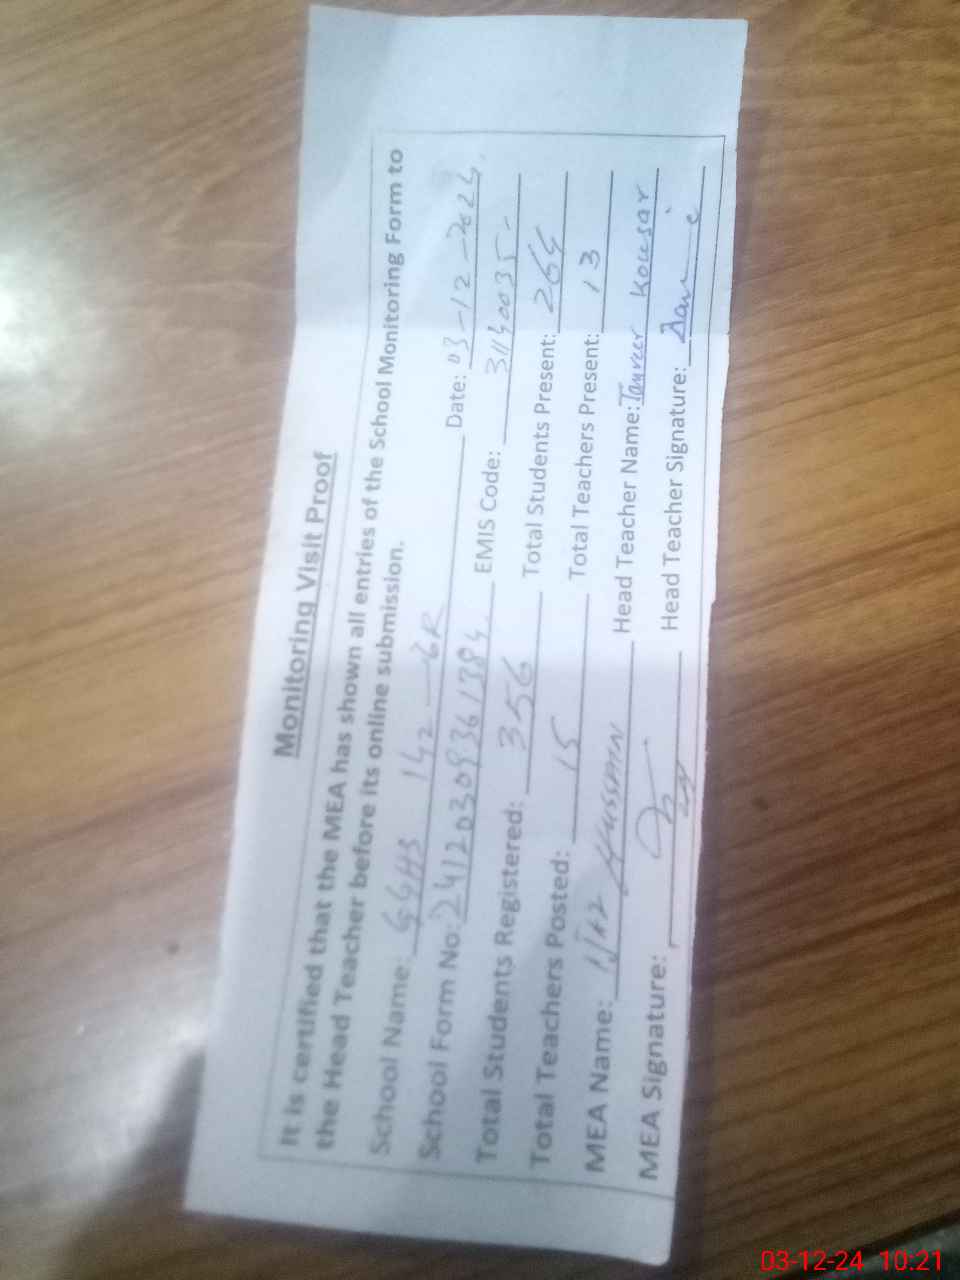 Monitoring Visit Proof
It is certified that the MEA has shown all entries of the School Monitoring Form to
the Head Teacher before its online submission.
School Name: GGHS 142-6R Date: 03-12-2024
School Form No: 24120309361384 EMIS Code: 31140035-
Total Students Registered: 356 Total Students Present: 264
Total Teachers Posted: 15 Total Teachers Present: 13
MEA Name: Hussain Head Teacher Name: Tanveer Kousar
MEA Signature: Head Teacher Signature:
03-12-24 10:21